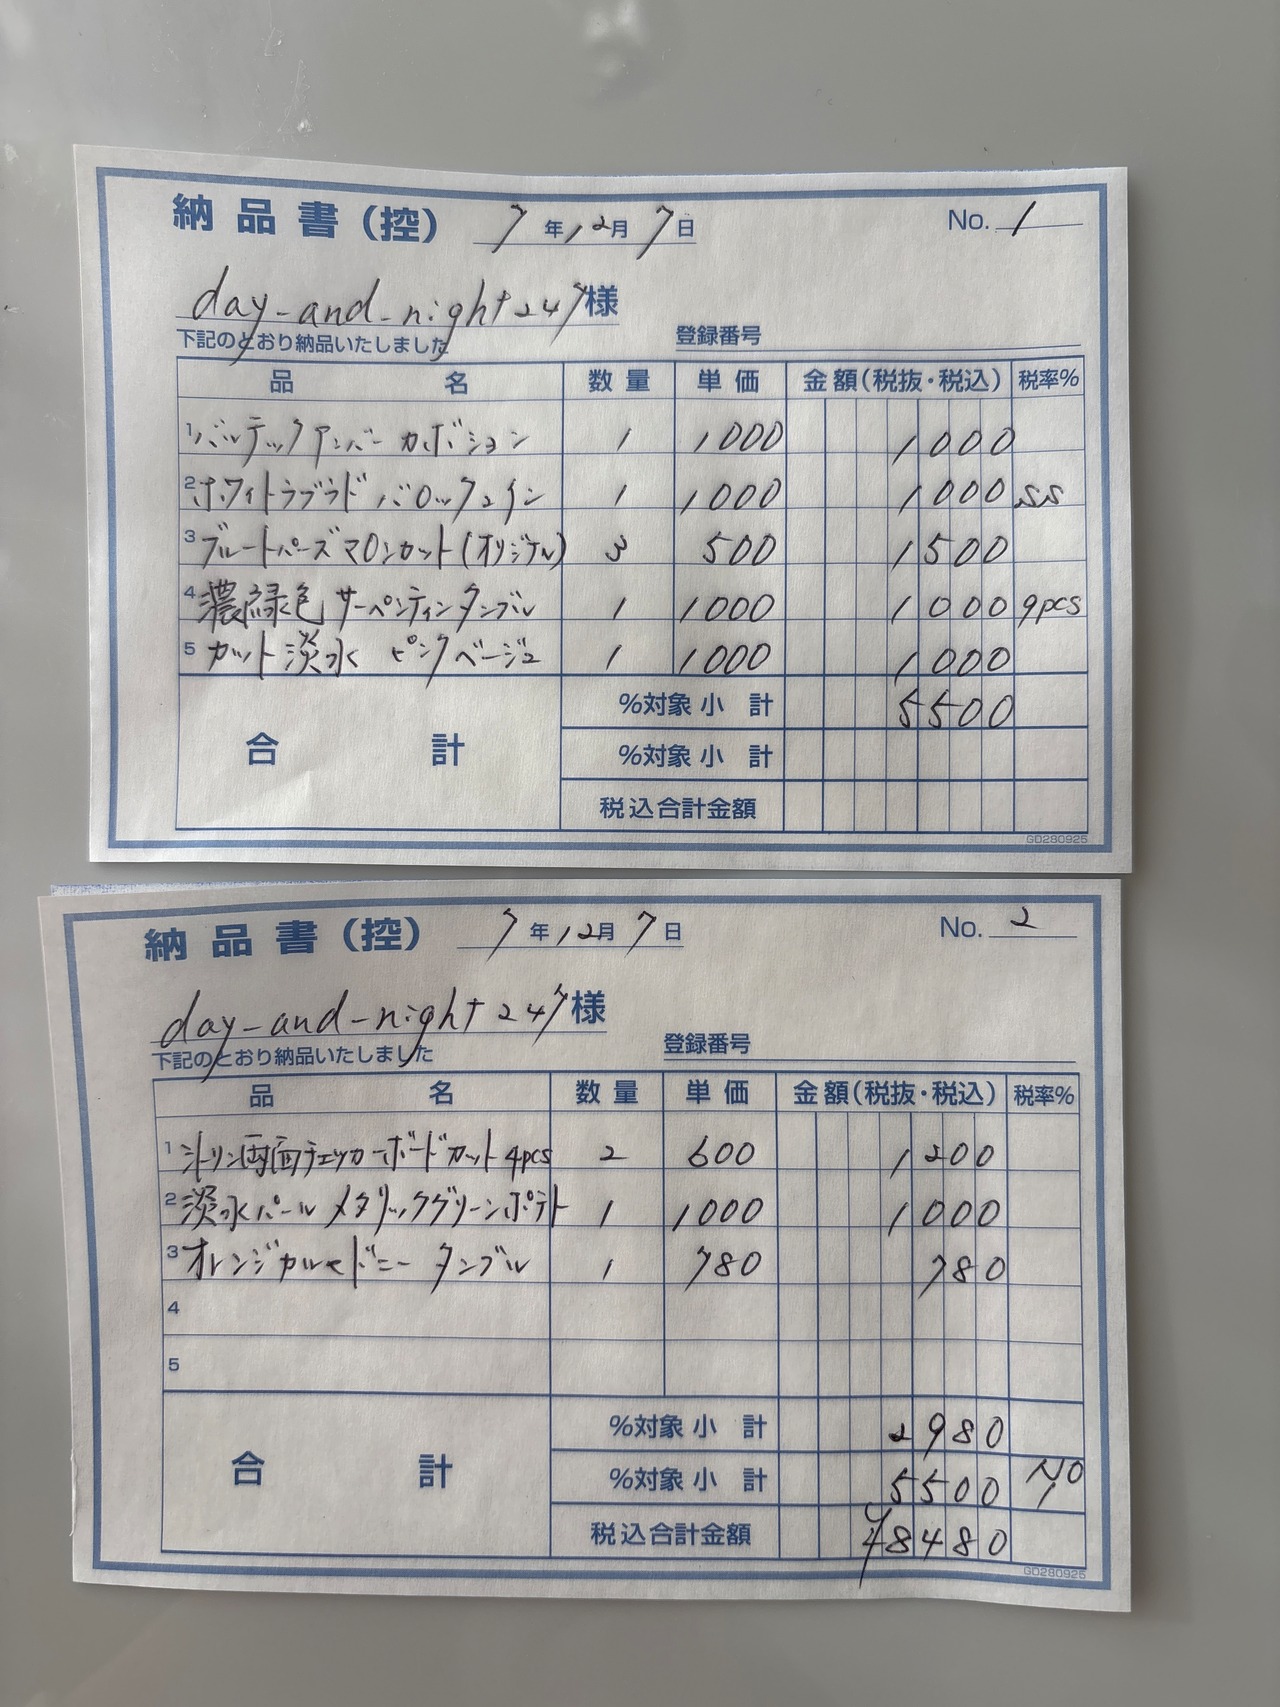 納品書(控) 7年12月7日 No. 1
day-and-night247様
下記のとおり納品いたしました 登録番号
品名 数量 単価 金額(税抜・税込) 税率%
1 バルテックアンバー カボション 1 1000 1000
2 ホワイトラブラド バロックコイン 1 1000 1000 SS
3 ブルートパーズマロンカット(オリジナル) 3 500 1500
4 濃緑色 サーペンティンタンブル 1 1000 1000 9pcs
5 カット淡水 ピンクベージュ 1 1000 1000
%対象小計 5500
合計 %対象小計
税込合計金額
GD280925
納品書(控) 7年12月7日 No. 2
day-and-night247様
下記のとおり納品いたしました 登録番号
品名 数量 単価 金額(税抜・税込) 税率%
1 シトリン両面チェッカーボードカット 4pcs 2 600 1200
2 淡水パール メタリックグリーンポテト 1 1000 1000
3 オレンジカルセドニー タンブル 1 780 780
4
5
%対象小計 2980
合計 %対象小計 5500 No 1
税込合計金額 ¥8480
GD280925